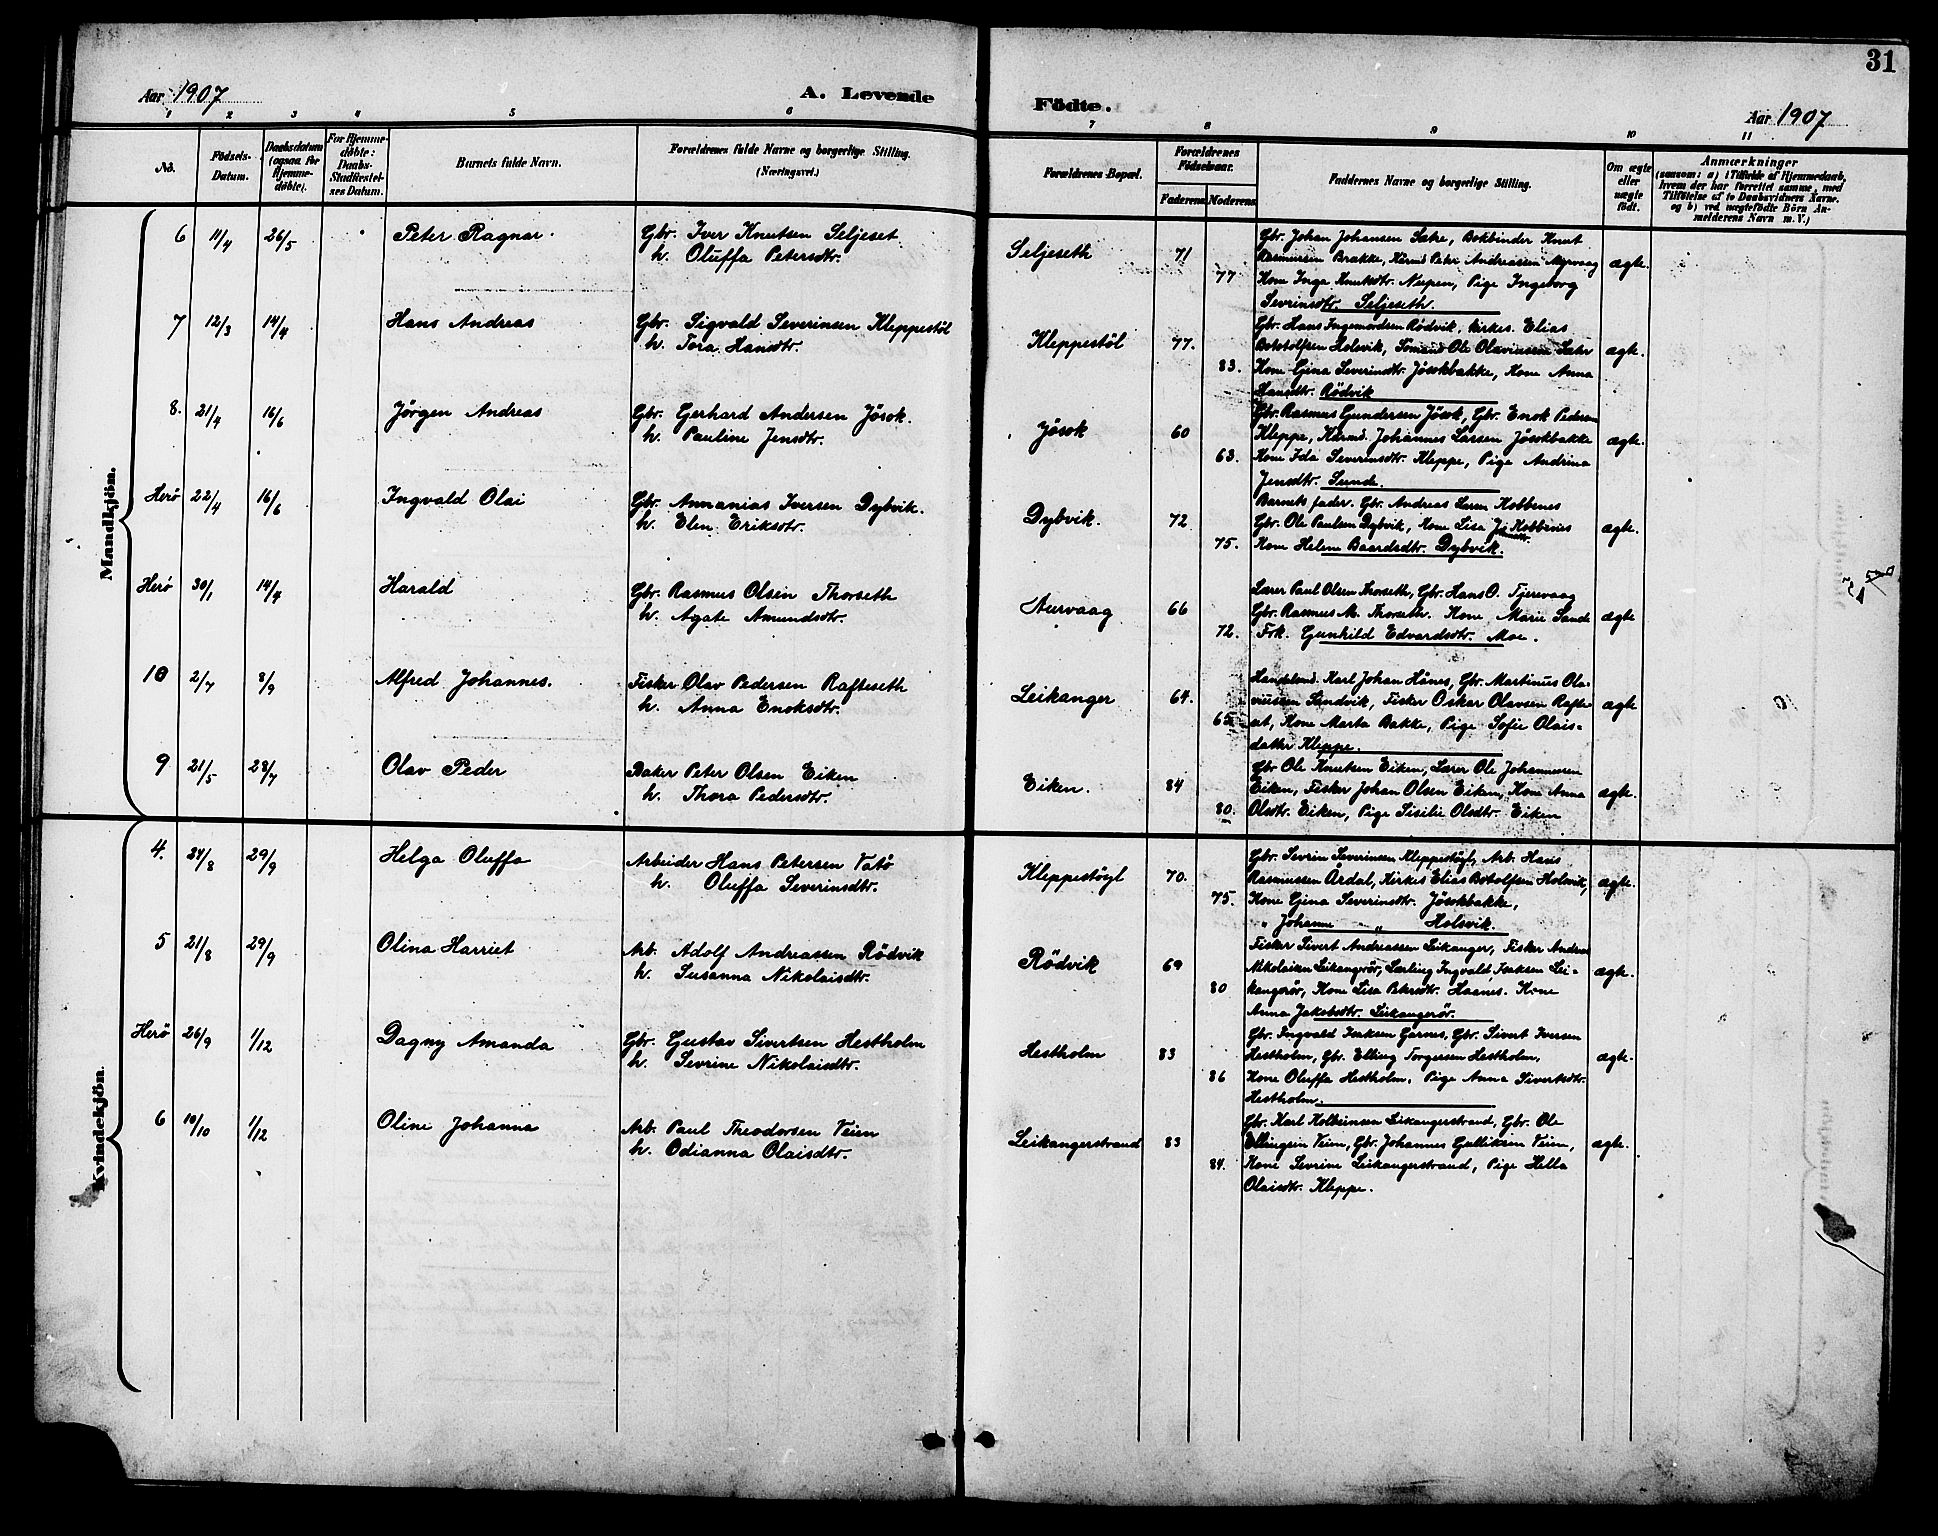 31
Aar 1907
A. Levende
Födte.
Aar 1907
1 2 3 4 5 6 7 8 9 10 11
No.
Födsels-Datum.
Daabsdatum (ogsaa for Hjemme-döbte).
For Hjemme-döbte: Daabs-Stadfæstel-ses Datum.
Barnets fulde Navn.
Forældrenes fulde Navne og borgerlige Stilling. (Næringsvei.)
Forældrenes Bopæl.
Forældrenes Födselsaar.
Faderens Moderens
Faddernes Navne og borgerlige Stilling.
Om ægte eller uægte födt.
Anmærkninger
(saasom: a) i Tilfælde af Hjemmedaab,
hvem der har forrettet samme, med
Tilföielse af to Daabsvidners Navne.
og b) ved uægtefödte Börn An-
melderens Navn m. V.)
Mandkjön.
6 11/4 26/5 Peter Ragnar. Gbr. Iver Knutsen Seljeset
h. Oluffa Petersdtr.
Seljeseth 71 77
Gbr. Johan Johansen Sætre, Bokbinder Knut
Rasmussen Brakke, Peter Andreassen Myrvaag
Kone Inga Knutsdtr. Nupen, Pige Ingeborg
Sevrinsdtr. Seljeseth.
ægte.
7 12/3 14/4 Hans Andreas Gbr. Sigvald Severinsen Kleppestöl
h. Tora Hansdtr.
Kleppestöl 77. 83.
Gbr. Hans Ingemardsen Rödvik, Kirkes. Elias
Botolfsen Holsvik, Ole Olaviussen
Kone Gina Severinsdtr. Jösokbakke, Kone Anna
Hansdtr. Rödvik
ægte.
8. 21/4 16/6 Jörgen Andreas Gbr. Gerhard Andersen Jösok.
h. Pauline Jensdtr.
Jösok 60 63.
Gbr. Rasmus Gundersen Jösok, Gbr. Enok Pedersen
Kleppe, Johannes Larsen Jösokbakke
Kone Ida Severinsdtr. Kleppe, Pige Andrina
Jensdtr. Sunde.
ægte.
Herö 22/4 16/6 Ingvald Olai Gbr. Annanias Iversen Dybvik.
h. Elen Eriksdtr.
Dybvik. 72 75.
Barnets fader. Gbr. Andreas Larsen Kobbenes
Gbr. Ole Paulsen Dybvik, Kone Lisa Kobbenes
Kone Helene Baardsdtr. Dybvik.
ægte.
Herö 30/1 14/4 Harald Gbr. Rasmus Olsen Thorseth
h. Agate Amundsdtr.
Aurvaag 66 72.
Lærer Paul Olsen Thorseth, Gbr. Hans O. Tjervaag
Gbr. Rasmus M. Thorseth. Kone Marie Sande
Frk. Gunhild Edvardsdtr. Moe.
ægte
10 2/7 8/9 Alfred Johannes. Fisker Olav Pedersen Rafteseth
h. Anna Enoksdtr.
Leikanger 64. 65
Karl Johan Hånes, Gbr. Martinus Ola-
viussen Sandvik, Fisker Oskar Olavsen Rafte-
set, Kone Marta Bakke, Pige Sofie Olais-
datter Kleppe.
ægte
9 21/5 28/7 Olav Peder Baker Peter Olsen Eiken
h. Thora Pedersdtr.
Eiken. 84 80.
Gbr Ole Knutsen Eiken, Lærer Ole Johannessen
Eiken, Fisker Johan Olsen Eiken, Kone Anna
Olsdtr. Eiken, Pige Sisilie Olsdtr. Eiken
ægte.
Kvindekjön.
4. 24/8 29/9 Helga Oluffa Arbeider Hans Petersen Vatö
h. Oluffa Severinsdtr.
Kleppestöyl 70. 75.
Gbr. Sevrin Severinsen Kleppestöyl, Arb. Hans
Rasmussen Årdal, Kirkes Elias Botolfsen Holsvik,
Kone Gina Severinsdtr. Jösokbakke,
" Johanne " Holsvik.
ægte.
5 21/8 29/9 Olina Harriet Arb. Adolf Andreassen Rödvik
h. Susanna Nikolaisdtr.
Rödvik 69 80
Fisker Sivert Andreassen Leikanger, Fisker Andreas
Nikolaisen Leikangerör, Lærling Ingvald Isaksen Lei-
kangerör, Kone Lisa Petersdtr. Haanes. Kone
Anna Jakobsdtr. Leikangerör.
ægte.
Herö 26/9 1/12 Dagny Amanda Gbr. Gustav Sivertsen Hestholm
h. Sevrine Nikolaisdtr.
Hestholm 83 86
Gbr. Ingvald Isaksen Garnes, Gbr. Sivert Iversen
Hestholm, Gbr. Elling Torgersen Hestholm,
Kone Oluffa Hestholm, Pige Anna Sivertsdtr.
Hestholm.
ægte.
6 10/10 1/12 Oline Johanna Arb. Paul Theodorsen Veim
h. Odianna Olaisdtr.
Leikangerstrand 83 84.
Gbr. Karl Kolbeinsen Leikangerstrand, Gbr. Ole
Ellingsen Veim, Gbr. Johannes Gulliksen Veim,
Kone Sevrine Leikangerstrand, Pige Hella
Olaisdtr. Kleppe.
ægte.